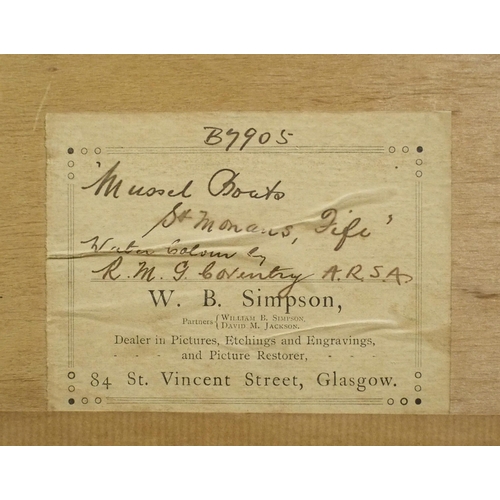 B7905
"Mussel Boats
St Monans, Fife"
Water Colour by
R. M. G. Coventry A.R.S.A.
W. B. Simpson,
Partners { William B. Simpson.
David M. Jackson.
Dealer in Pictures, Etchings and Engravings,
and Picture Restorer,
84 St. Vincent Street, Glasgow.